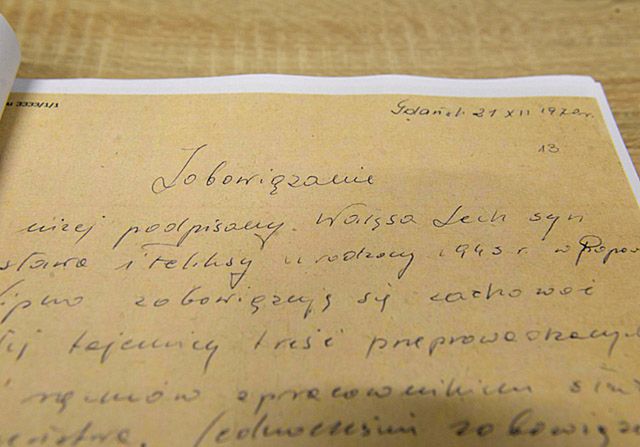 3333/1/1
Gdańsk 21 XII 1970r.
13
Zobowiązanie
niżej podpisany Wałęsa Lech syn
sława i Feliksy urodzony 1943 r. w Popow
Lipno zobowiązuję się zachować
tajemnicy treść przeprowadzonych
z pracownikiem
Jednocześnie zobowiąz